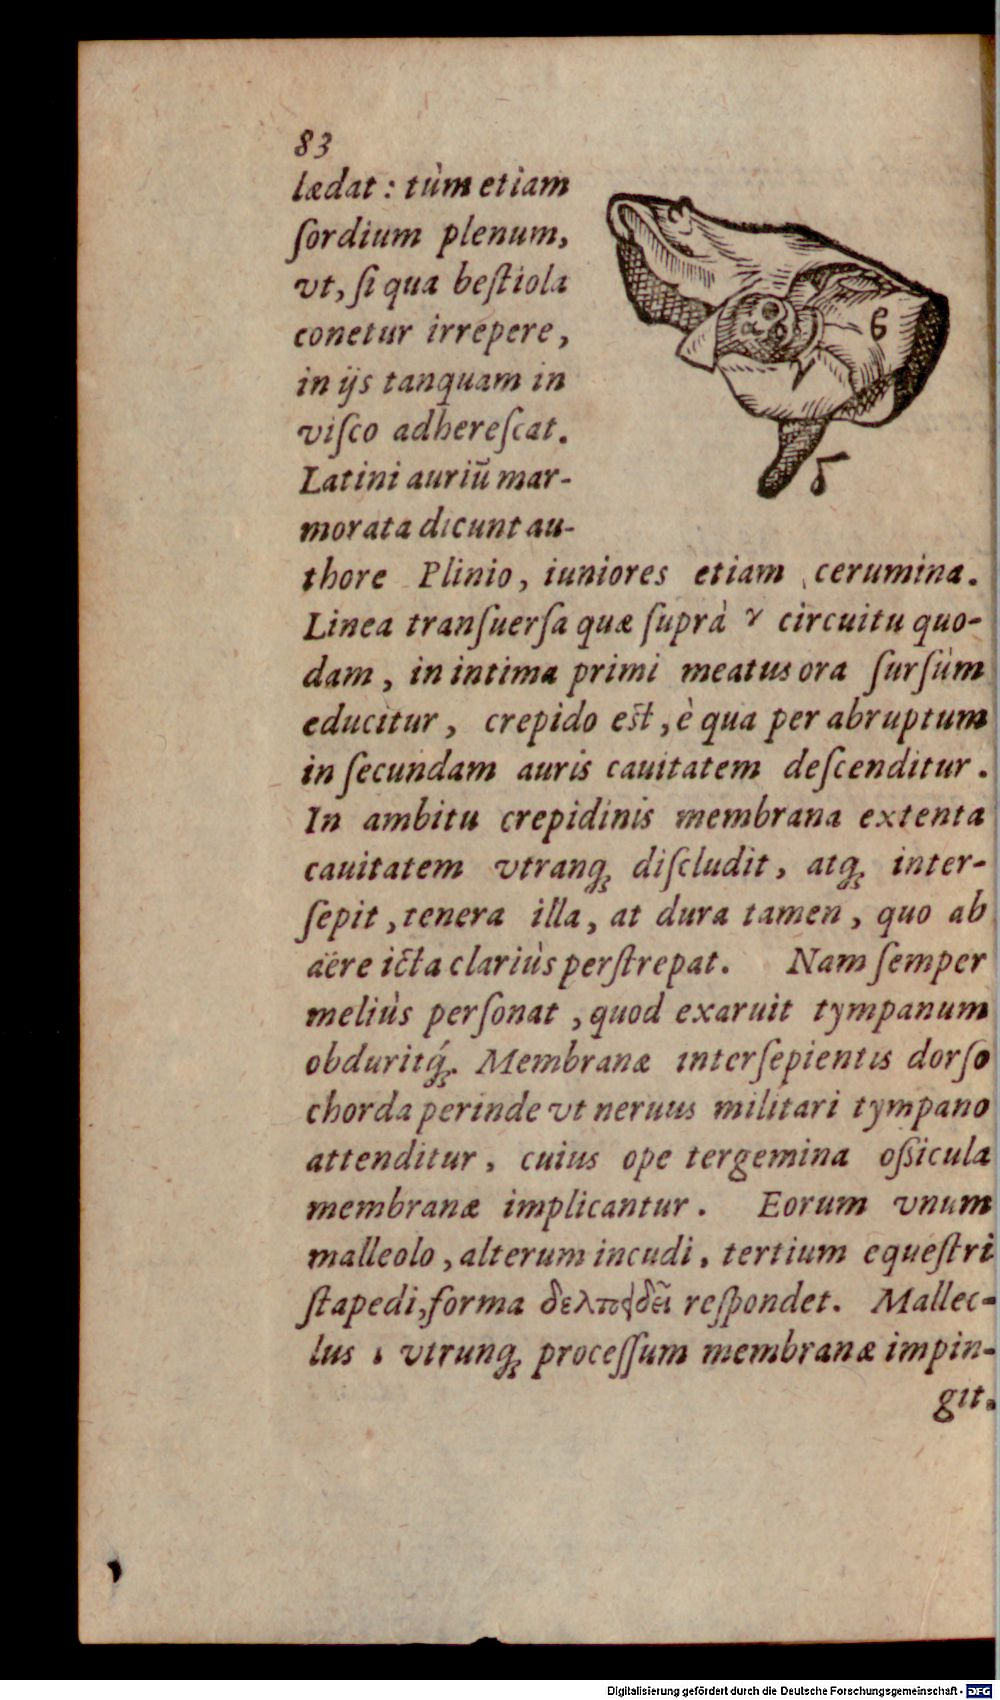 83
lædat : tùm etiam
ſordium plenum,
vt, ſi qua beſtiola
conetur irrepere,
in ijs tanquam in
viſco adhereſcat.
Latini auriũ mar-
morata dicunt au-
α
β
δ
thore Plinio, iuniores etiam cerumina.
Linea tranſuerſa quæ ſuprà γ circuitu quo-
dam, in intima primi meatus ora ſurſùm
educitur, crepido eſt, è qua per abruptum
in ſecundam auris cauitatem deſcenditur.
In ambitu crepidinis membrana extenta
cauitatem vtranq; diſcludit, atq; inter-
ſepit, tenera illa, at dura tamen, quo ab
aëre icta clariùs perſtrepat. Nam ſemper
meliùs perſonat, quod exaruit tympanum
obduritq́;. Membranæ interſepientis dorſo
chorda perinde vt neruus militari tympano
attenditur, cuius ope tergemina oßicula
membranæ implicantur. Eorum vnum
malleolo, alterum incudi, tertium equeſtri
ſtapedi, forma reſpondet. Malleo-
lus ι vtrunq; proceſſum membranæ impin-
git.
Digitalisierung gefördert durch die Deutsche Forschungsgemeinschaft - DFG